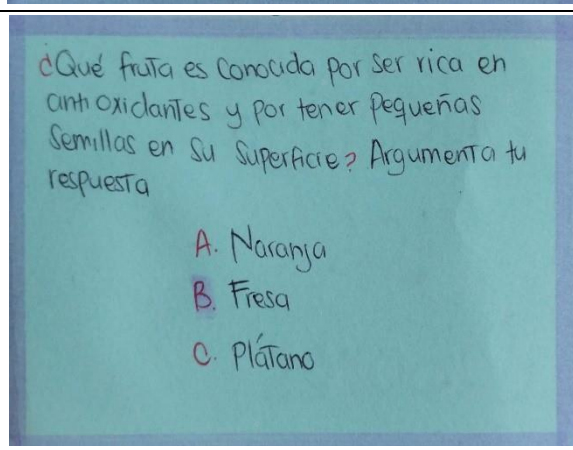 ¿Qué fruta es conocida por ser rica en
antioxidantes y por tener pequeñas
semillas en su superficie? Argumenta tu
respuesta
A. Naranja
B. Fresa
C. Plátano